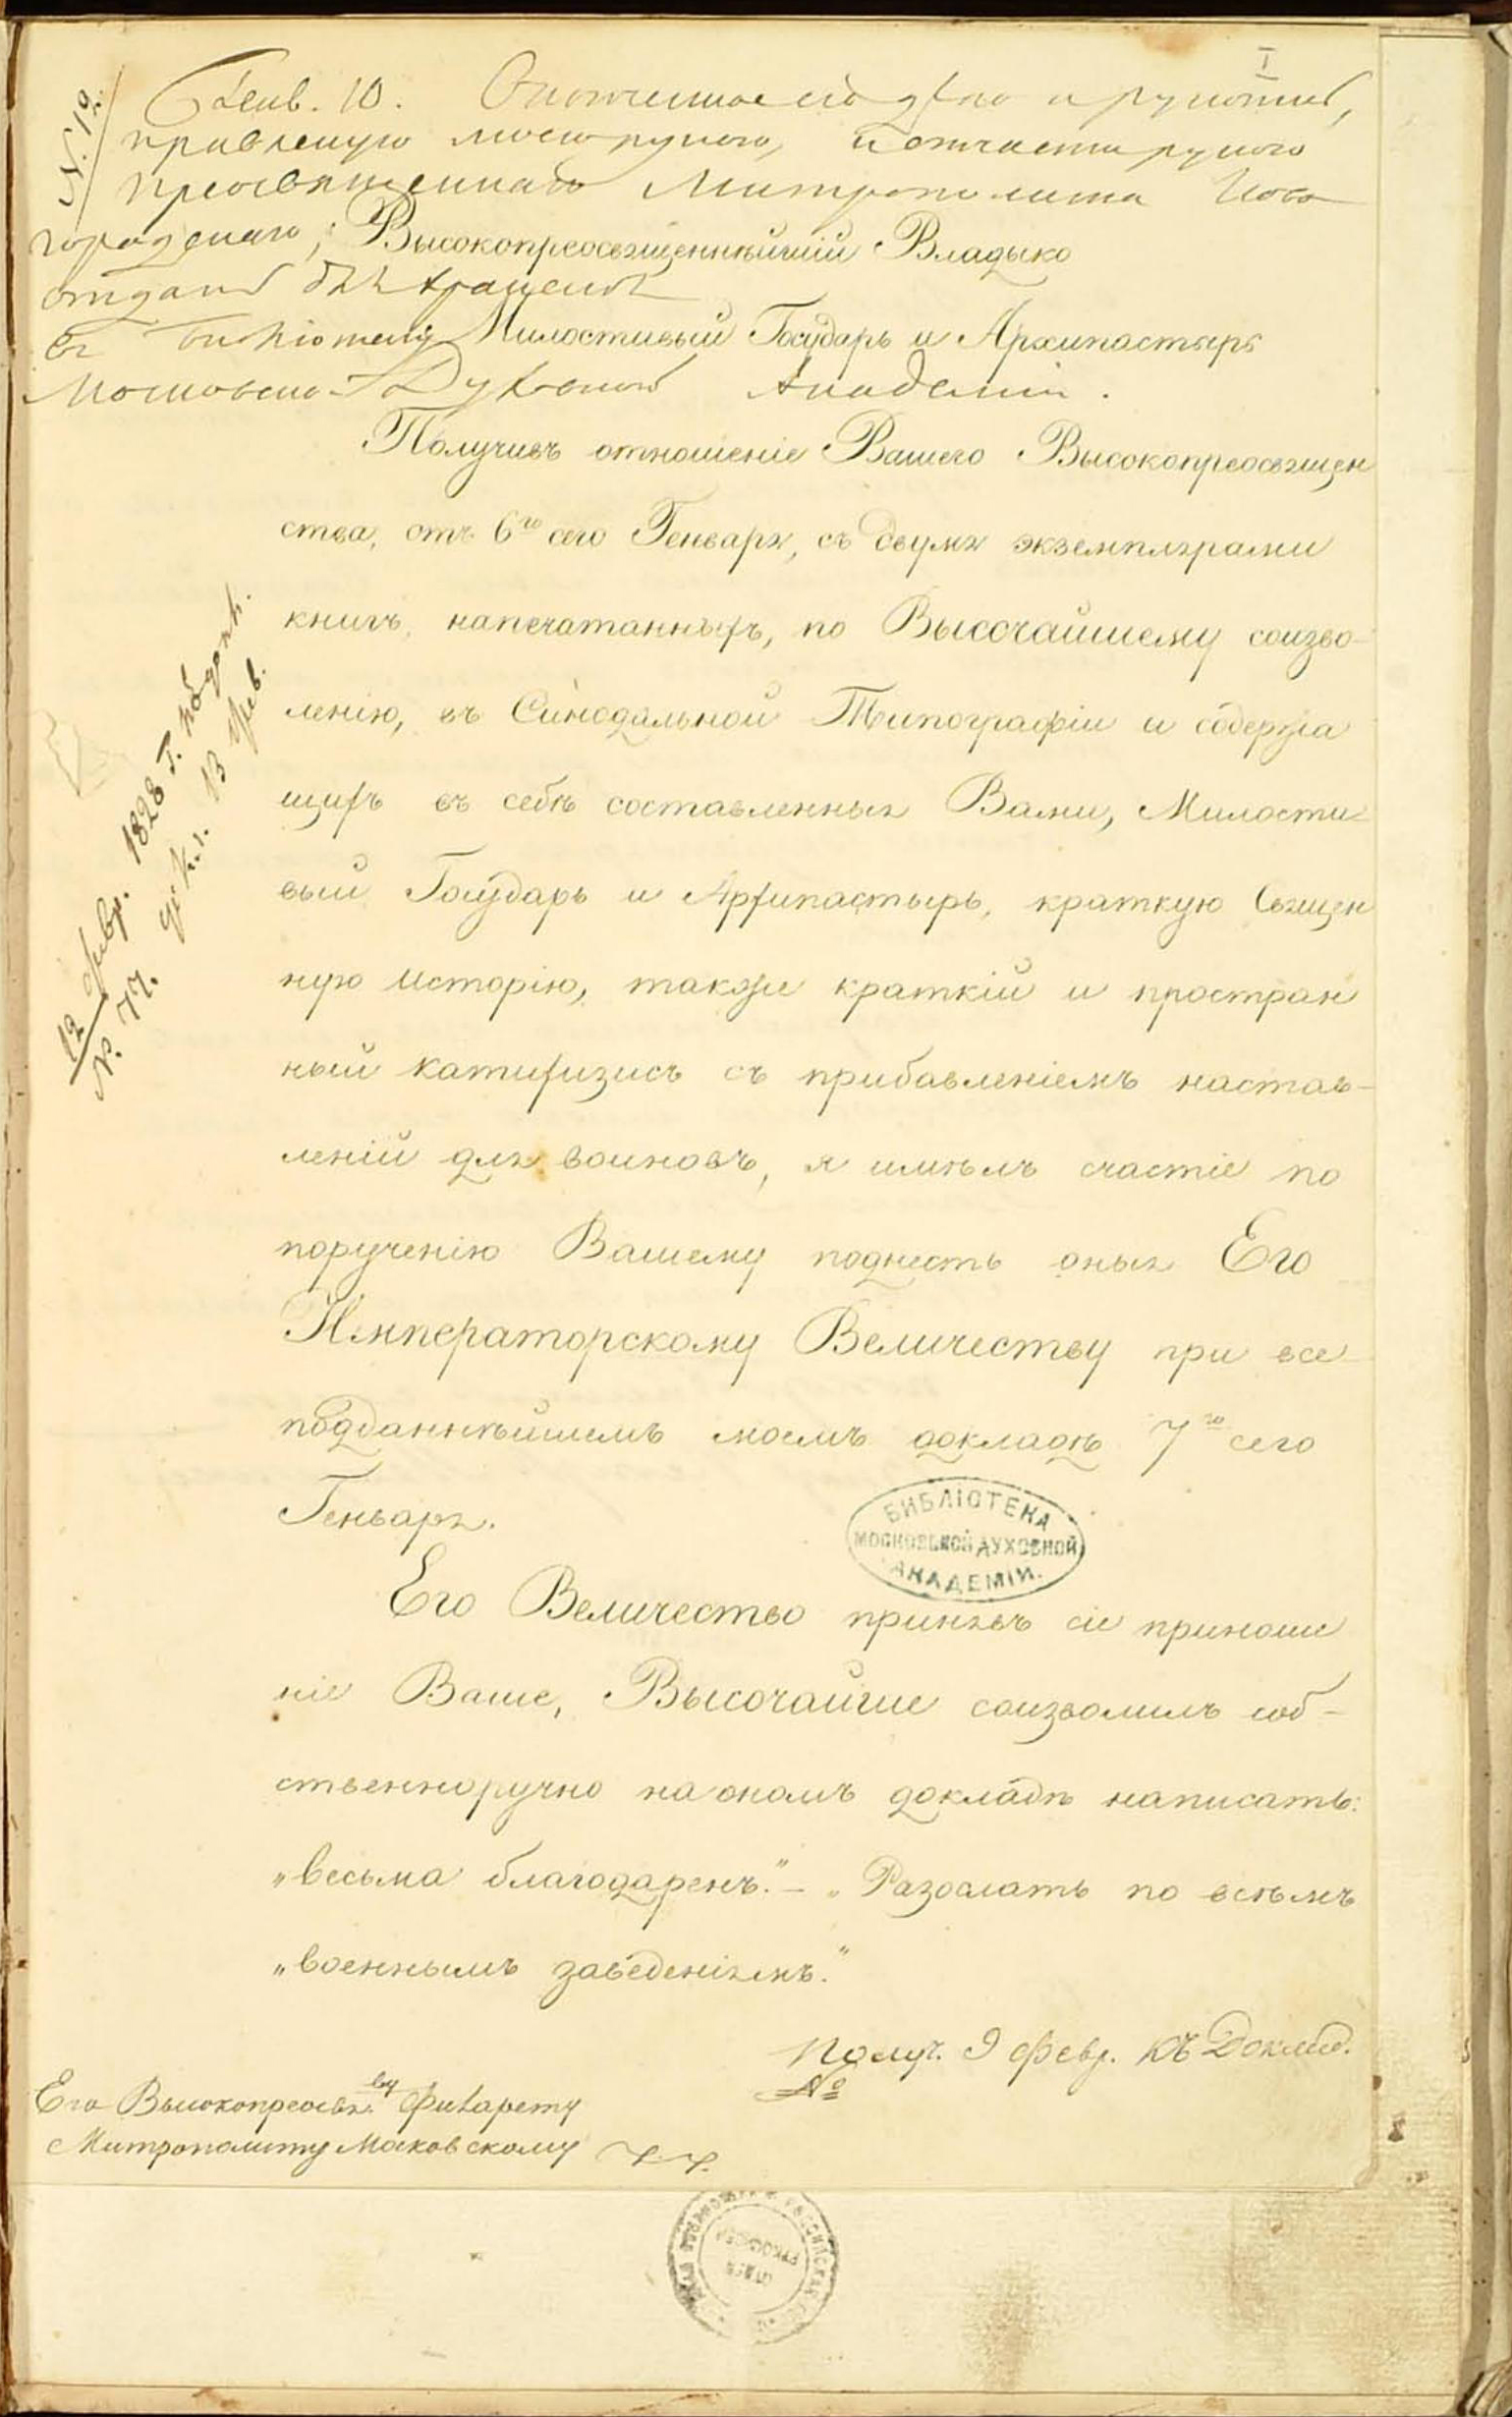 I
N. 12.
Генв. 10.
правленую моею рукою, и отчасти рукою
преосвященнаго Митрополита Ново
городскаго;
Высокопреосвященнѣйшій Владыко
Милостивый Государь и Архипастырь
въ библіотеку
Московской Духовной Академіи.
Получивъ отношеніе Вашего Высокопреосвящен
ства, отъ 6го сего Генваря, съ двумя экземплярами
книгъ, напечатанныхъ, по Высочайшему соизво-
ленію, въ Сѵнодальной Типографіи и содержа
щихъ въ себѣ составленныя Вами, Милости
вый Государь и Архипастырь, краткую Священ
ную Исторію, также краткій и простран
ный катихизисъ съ прибавленіемъ настав-
леній для воиновъ, я имѣлъ счастіе по
порученію Вашему поднесть оныя Его
Императорскому Величеству при все
подданнѣйшемъ моемъ докладѣ 7го сего
Генваря.
Его Величество принявъ сіе приноше
ніе Ваше, Высочайше соизволилъ соб-
ственноручно на ономъ докладѣ написать:
„весьма благодаренъ.“ – „Разослать по всѣмъ
„военнымъ заведеніямъ.“
12 февр. 1828 г.
N. 77. 13 фев.
Получ. 9 февр. Къ Доклад.
№
Его Высокопреосвя.ву Филарету
Митрополиту Московскому
БИБЛІОТЕКА
МОСКОВСКОЙ ДУХОВНОЙ
АКАДЕМІИ.